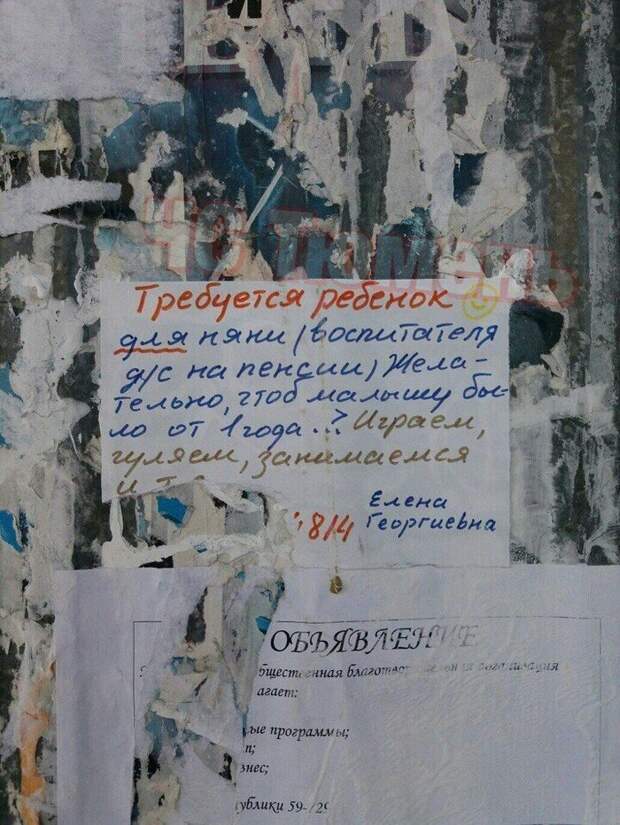 Тюмень
Требуется ребенок
для няни (воспитателя
д/с на пенсии) Жела-
тельно, чтоб малышу бы-
ло от 1 года...? Играем,
гуляем, занимаемся
и т.
8/4
Елена
Георгиевна
ОБЪЯВЛЕНИЕ
бщественная благотворительная организация
агает:
ые программы;
п;
знес;
ублики 59-/29